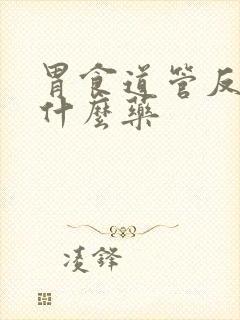 胃食道管反
什麼藥
凌鋒